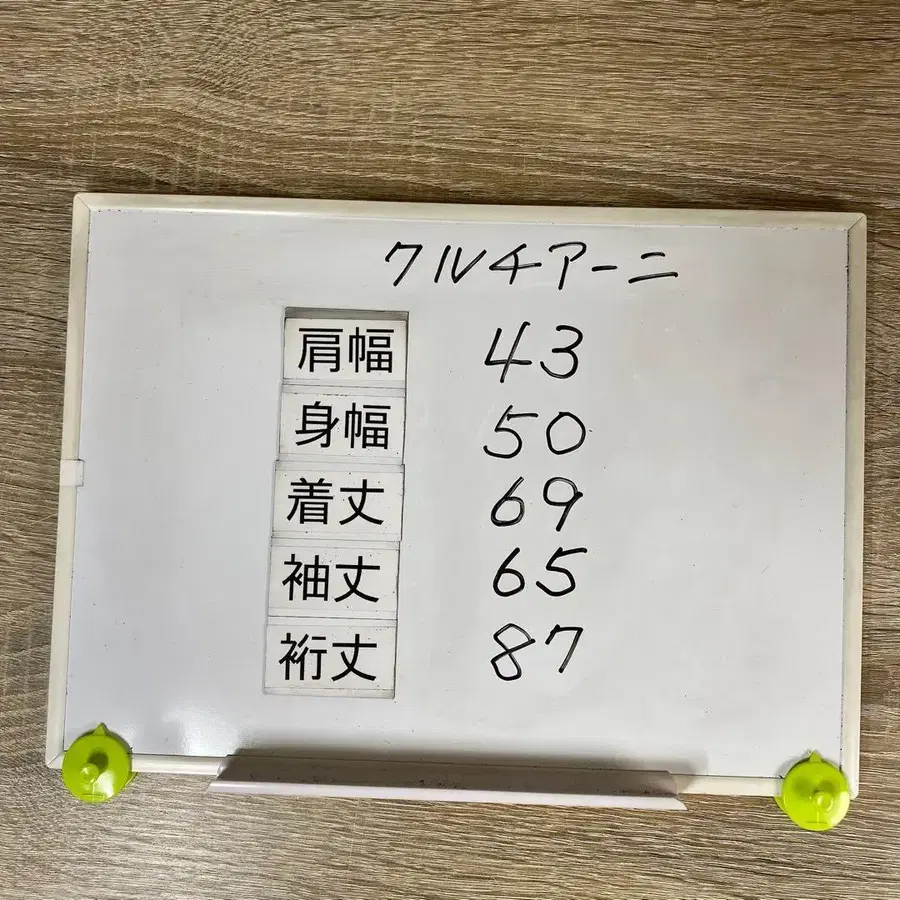 クルチアーニ
肩幅 43
身幅 50
着丈 69
袖丈 65
裄丈 87